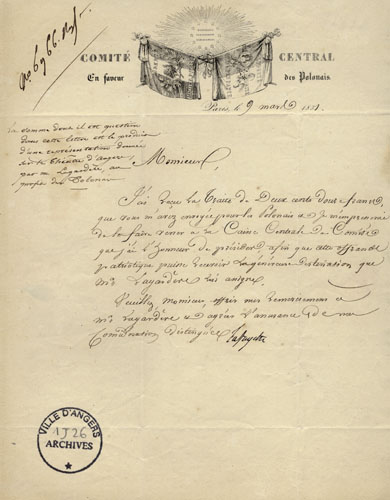 No 6966. Div.
COMITÉ CENTRAL
En faveur des Polonais.
Paris, le 9 mars 1831.
La somme dont il est question
dans cette lettre est le produit
d'une représentation donnée
sur le théâtre d'Angers
par mr Lagardère, au
profit des Polonais
Monsieur,
J'ai reçu la traite de Deux cents douze francs
que vous m'avez envoyée pour les Polonais et je m'empresserai
de la faire verser à la Caisse Centrale du Comité
que j'ai l'honneur de présider afin que cette offrande
patriotique puisse recevoir la généreuse destination que
Mr Lagardère lui assigne.
Veuillez, monsieur, offrir mes remerciements à
Mr Lagardère et agréer l'assurance de ma
Considération distinguée Lafayette
VILLE D'ANGERS
1J26
ARCHIVES